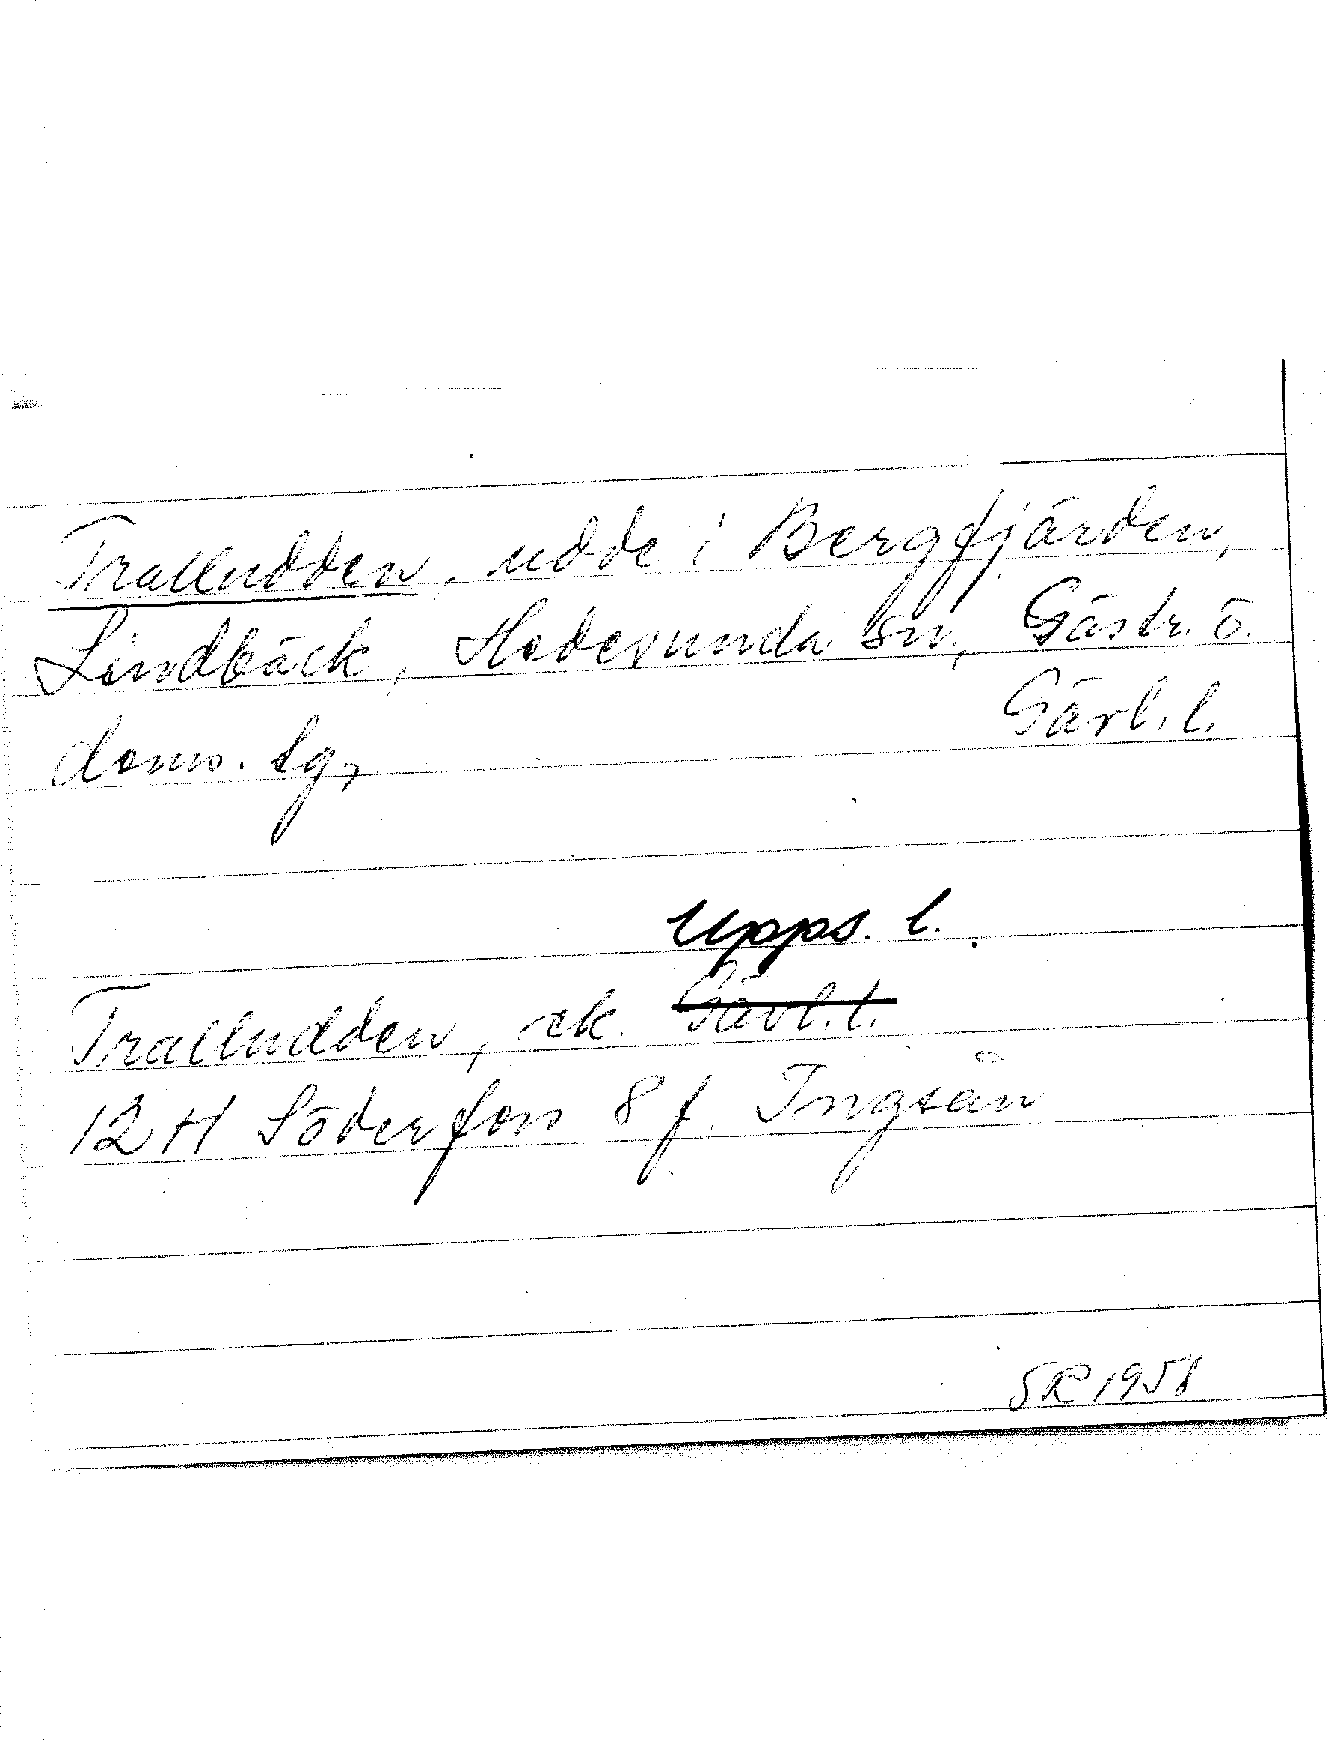 Tralludden, udde i Bergfjärden,
Lindbäck, Hedesunda sn, Gästr. ö.
doms. sg, Gävl. l.
Upps. l.
Tralludden, ek. Gävl. l.
12 H Söderfors 8 f Ingsån
SR 1958